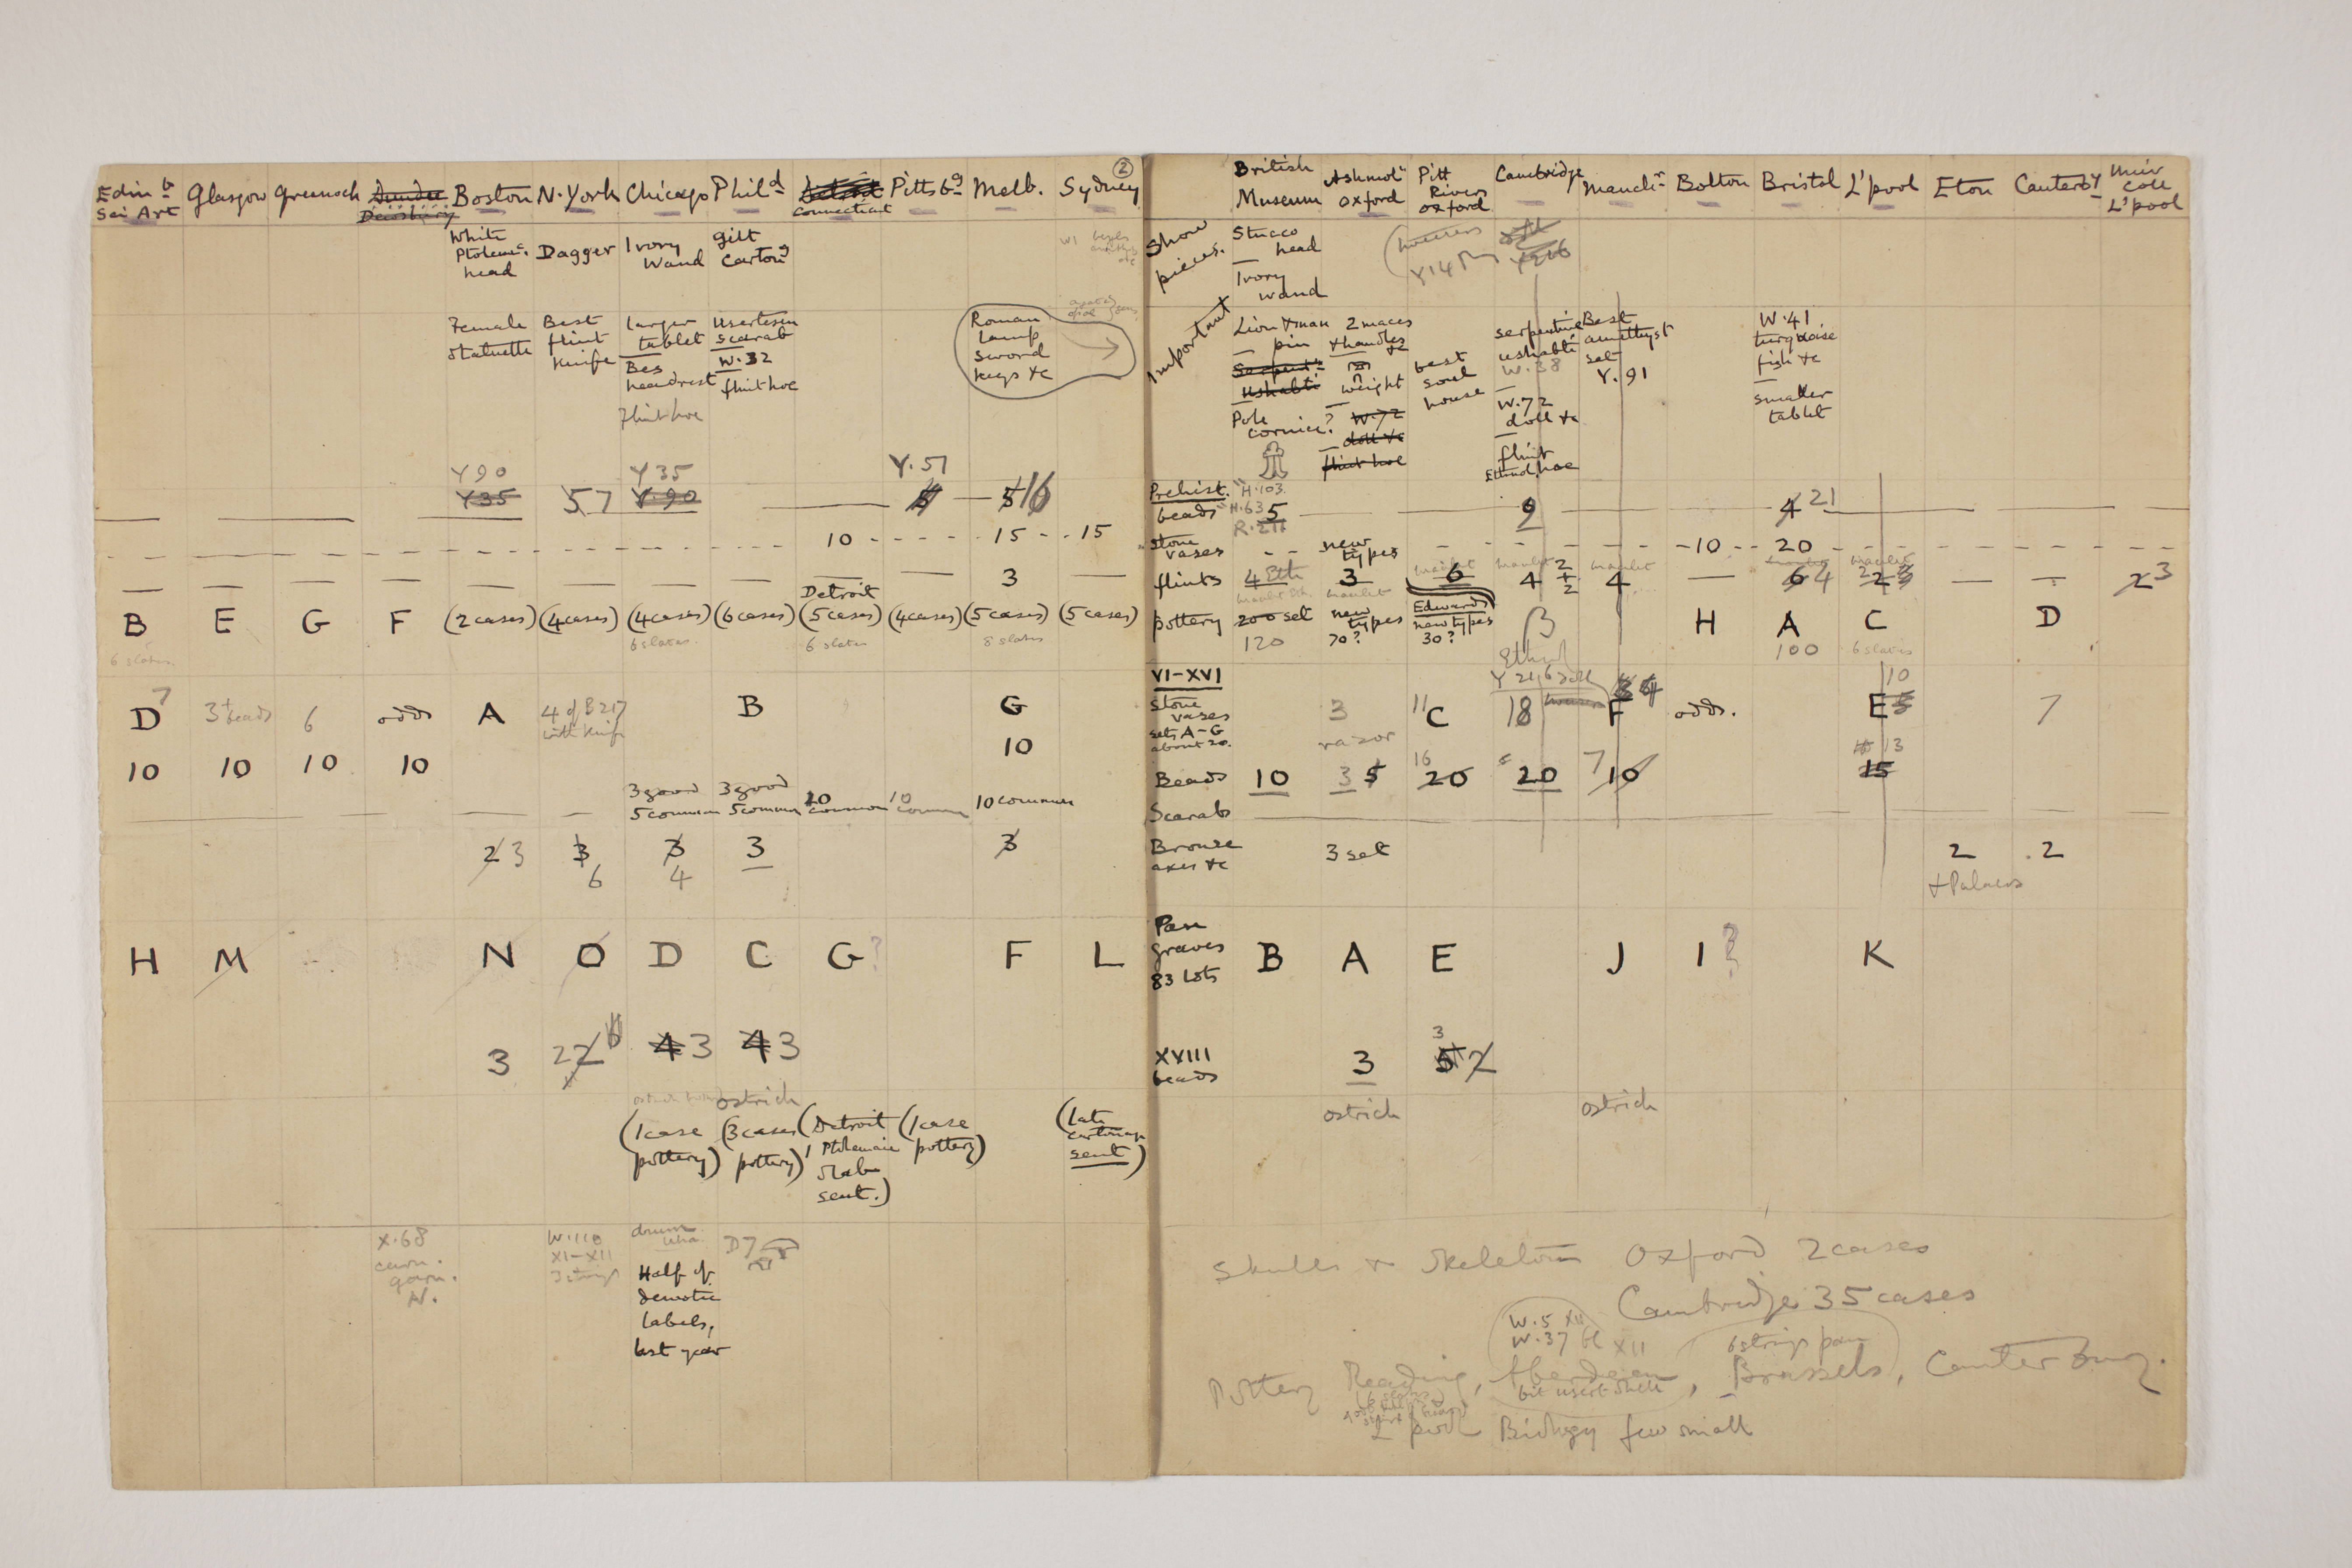 ②
Edin b Glasgow Greenock Dundee Boston N. York Chicago Phild Detroit Pittsbg Melb. Sydney
Sci Art Dewsbury Connecticut
White Ptolemc. head
Dagger
Ivory Wand
Gilt Cartong
Female statuette
Best flint knife
larger tablet
Bes headrest
flint hoe
Usertesen scarab
W.32
flint hoe
Roman lamp sword keys &c
Y 90 Y 35 Y.57
Y35 57 Y.90 5 16
10 15 15
3
Detroit
B E G F (2 cases) (4 cases) (4 cases) (6 cases) (5 cases) (4 cases) (5 cases) (5 cases)
6 slates 6 slates 6 slates 8 slates
D 7 3 + beads 6 odds A 4 of B 217 with knife B G
10
10 10 10 10
3 good 3 good
5 common 5 common 20 common 10 common 10 common
2 3 3 3 3 3
6 4
H M N O D C G? F L
3 2 2 6 4 3 4 3
ostrich
(1 case pottery)
(3 cases pottery)
(Detroit 1 Ptolemaic slab sent.)
(1 case pottery)
(late cartonage sent)
X.68
W.110
XI-XII
3 strings
drum
D7
Half of
demotic
labels,
last year
British Museum
Ashmoln Oxford
Pitt Rivers Oxford
Cambridge Manchr. Bolton Bristol L'pool Eton Cantery
Muir Coll L'pool
Show pieces.
Stucco head
Ivory wand
Y14
Important
Lion & man pin
Serpent. Ushabti
Pole cornice?
2 maces & handles &c
weight
W.72
doll &c
flint hoe
best soul house
serpentine ushabti
W.38
W.72
doll &c
flint hoe
Best amethyst set
Y.91
W.41
turquoise fish &c
smaller tablet
Prehist. H.103
beads H.63 5 9 4 21
Stone vases new types 10 20
flints 4 3 6 4 2 + 2 4 6 4 2 2 3 2 3
pottery 200 set new types Edwards new types B H A C D
120 70? 30? 100 6 slates
VI-XVI
Stone vases 3 11 C 18 F 4 odds. E 5 10 7
sets A-G
about 20. razor
Beads 10 3 5 16 20 20 7 10 13 15
Scarabs
Bronze axes &c 3 set 2 2
& Palmers
Pan graves B A E J I? K
83 lots
XVIII beads 3 3 5 2
ostrich ostrich
Skulls & Skeletons Oxford 2 cases
Cambridge 35 cases
W.5 XII
W.37 XII 6 strings pan
Pottery Reading, Aberdeen, Brussels, Canterbury.
6 slates bit usert shell
L'pool Biology few small